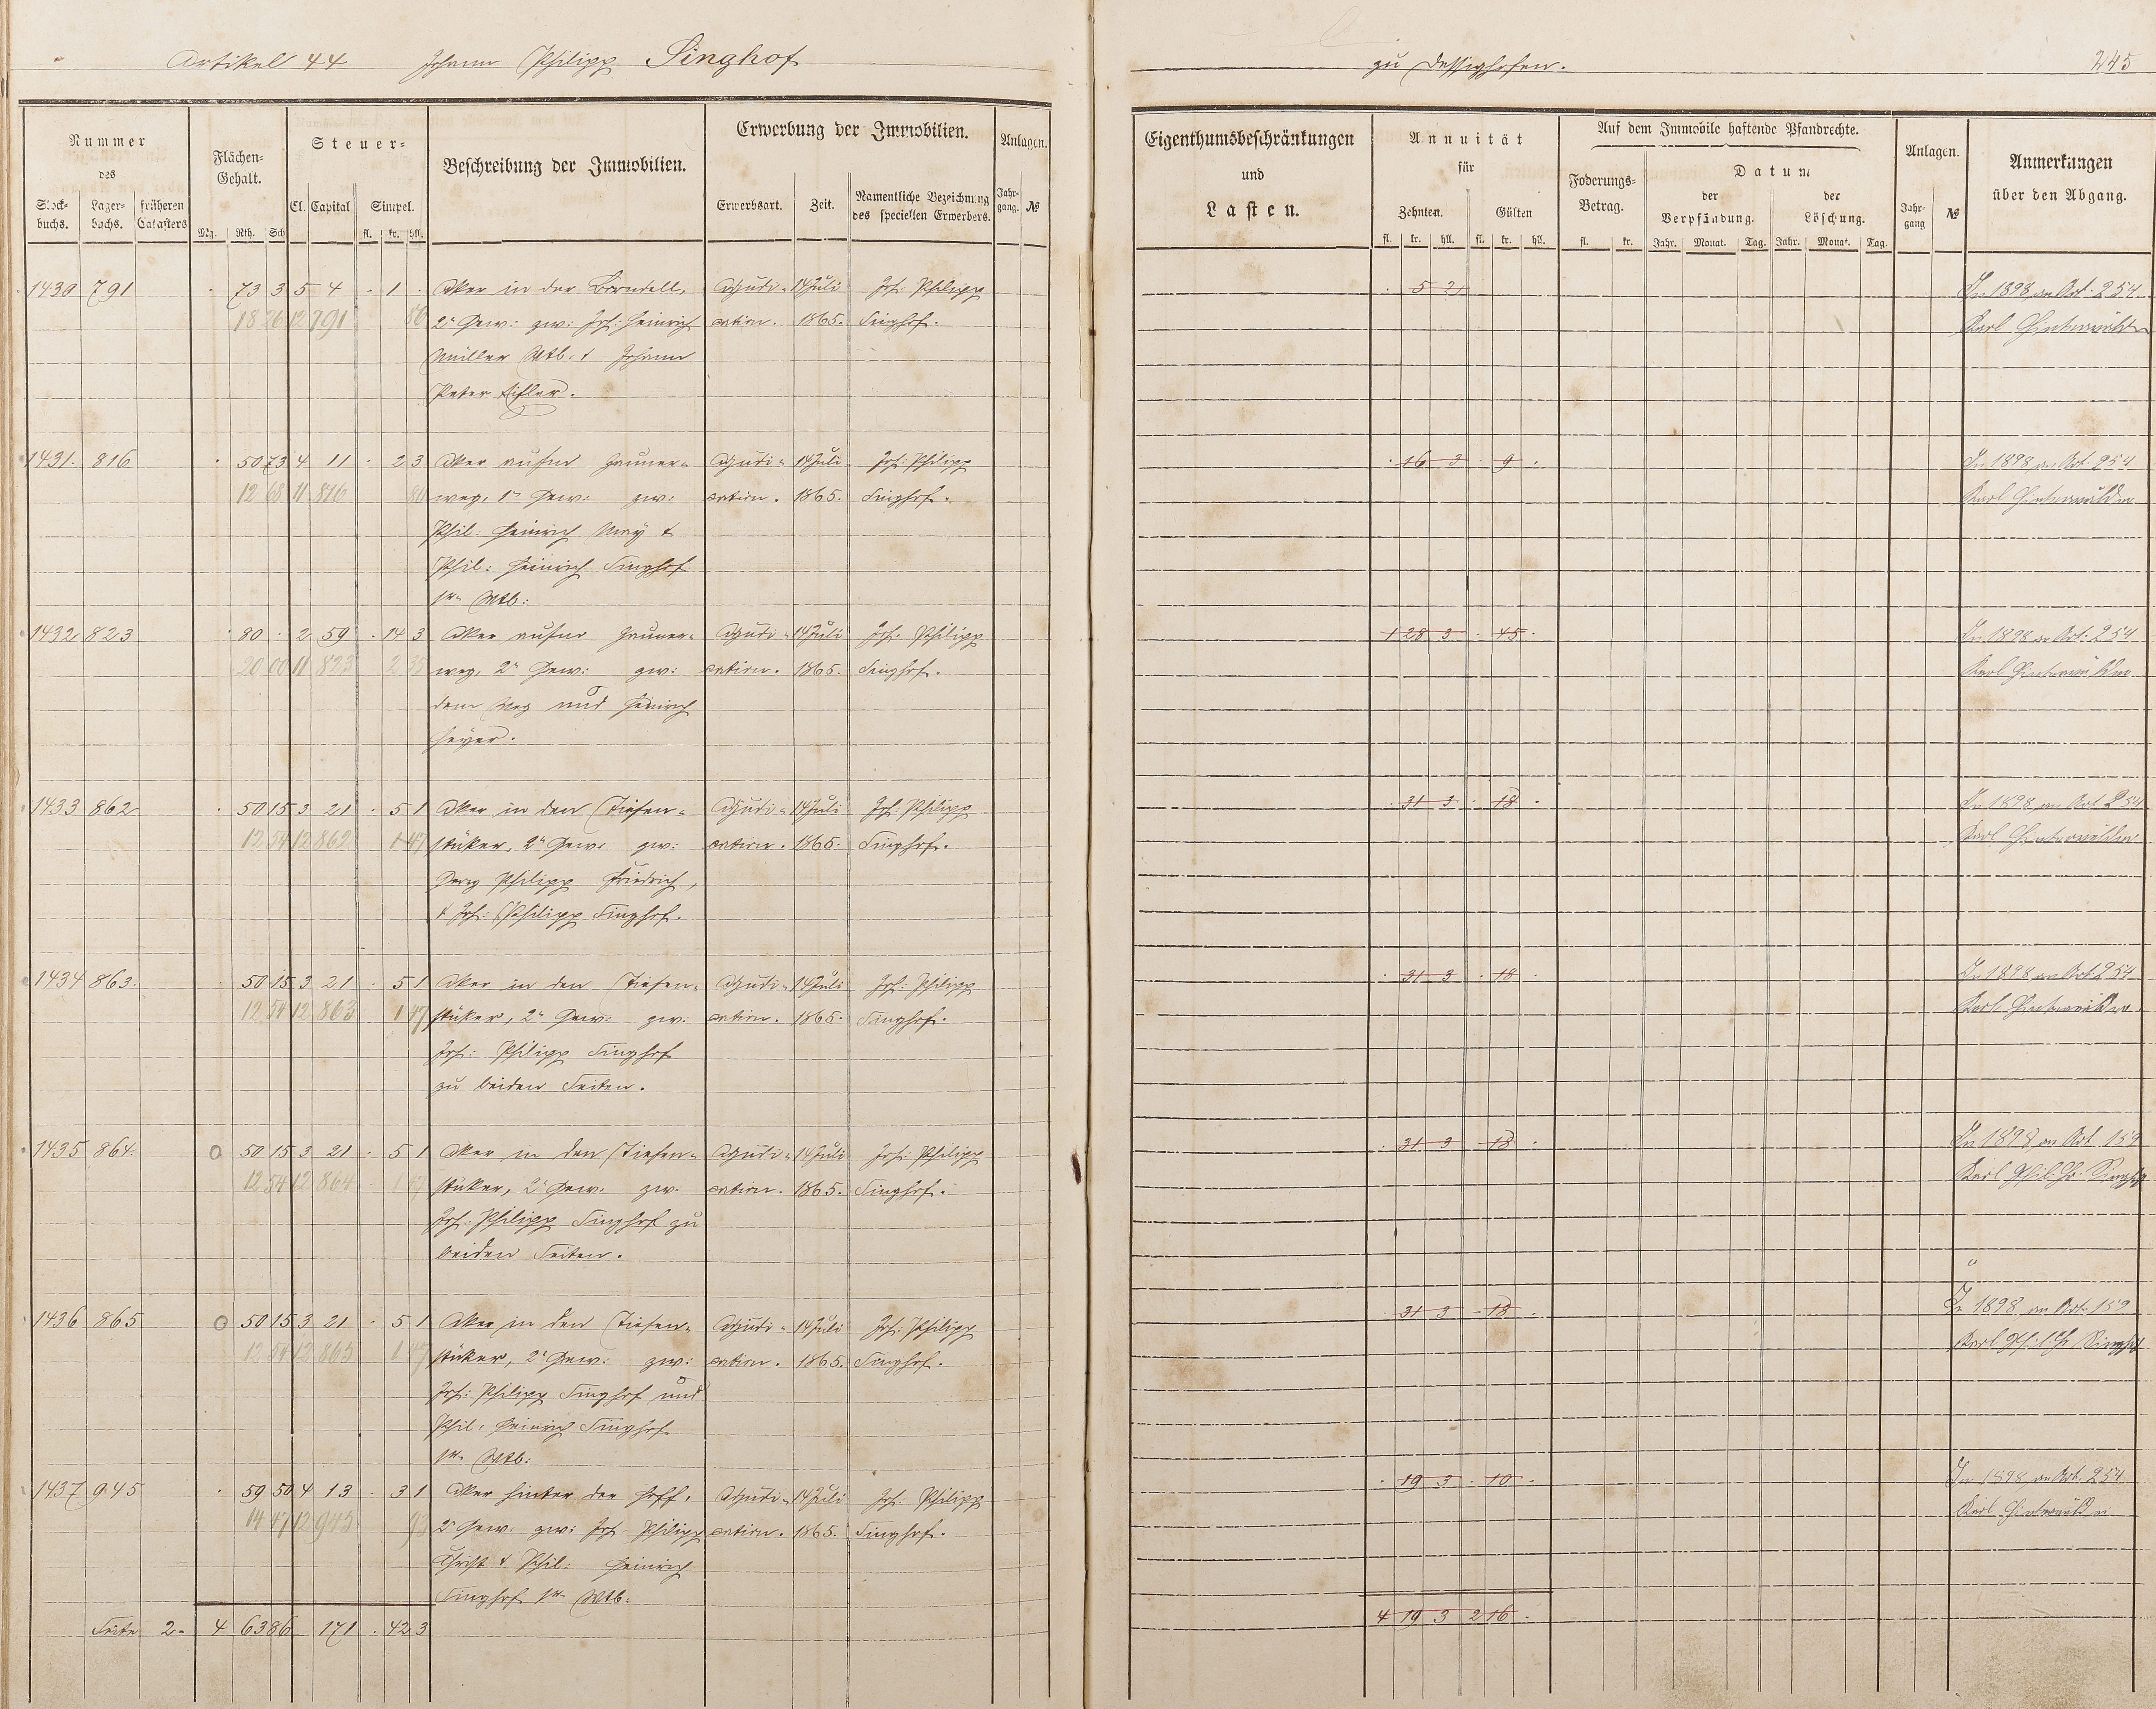 Artikel 44 Johann Philipp Singhof
zu Dessighofen. 245
Nummer
des
Stock-
buchs.
Lager-
buchs.
früheren
Catasters
Flächen-
Gehalt.
Mg. Rth. Sch
Steuer-
Cl. Capital Simpel.
fl. kr. hll.
Beschreibung der Immobilien.
Erwerbung der Immobilien.
Erwerbsart. Zeit.
Namentliche Bezeichnung
des speciellen Erwerbers.
Anlagen.
Jahr-
gang. №
Eigenthumsbeschränkungen
und
Lasten.
Annuität
für
Zehnten. Gülten
fl. kr. hll. fl. kr. hll.
Auf dem Immobile haftende Pfandrechte.
Foderungs-
Betrag.
fl. kr.
Datum
der
Verpfändung.
der
Löschung.
Jahr. Monat. Tag. Jahr. Monat. Tag.
Anlagen.
Jahr-
gang №
Anmerkungen
über den Abgang.
1430 791 . 73 3 5 4 . 1 . Acker in der Borndell, Adjudi- 14 Juli Joh: Philipp . 5 2 In 1898 an Art. 254
18 26 12 791 86 2r Gew: zw: Joh: Heinrich cation. 1865. Singhof. Karl
Müller Wtb. & Johann
Peter Eisler.
1431. 816 . 50 73 4 11 . 2 3 Acker aufm Hauner- Adjudi- 14 Juli Joh: Philipp . 16 3 . 9 . In 1898 an Art. 254
12 68 11 816 80 weg, 1r Gew: zw: cation. 1865. Singhof. Karl
Phil: Heinrich May &
Phil: Heinrich Singhof
sr Wtb:
1432 823 . 80 . 2 59 . 14 3 Acker aufm Hauner- Adjudi- 14 Juli Joh: Philipp 1 28 3 . 45 . In 1898 an Art. 254
20 00 11 823 2 35 weg, 2r Gew: zw: cation. 1865. Singhof. Karl
dem Weg und Heinrich
Heyer.
1433 862 . 50 15 3 21 . 5 1 Acker in den Tiefen- Adjudi- 14 Juli Joh: Philipp . 31 3 . 18 . In 1898 an Art 254
12 54 12 862 1 47 stücker, 2r Gew: zw: cation. 1865. Singhof. Karl
Georg Philipp Friedrich,
& Joh: Philipp Singhof.
1434 863. . 50 15 3 21 . 5 1 Acker in den Tiefen- Adjudi- 14 Juli Joh: Philipp . 31 3 . 18 . In 1898 an Art. 254
12 54 12 863 1 47 stücker, 2r Gew: zw: cation. 1865. Singhof. Karl
Joh: Philipp Singhof
zu beiden Seiten.
1435 864 50 15 3 21 . 5 1 Acker in den Tiefen- Adjudi- 14 Juli Joh: Philipp . 31 3 . 18 . In 1898 an Art 159
12 54 12 864 1 47 stücker, 2r Gew: zw. cation. 1865. Singhof. Karl Singhof
Joh: Philipp Singhof zu
beiden Seiten.
1436 865 50 15 3 21 . 5 1 Acker in den Tiefen- Adjudi- 14 Juli Joh: Philipp . 31 3 . 18 . In 1898 an Art. 159
12 54 12 865 1 47 stücker, 2r Gew: zw: cation. 1865. Singhof. Karl Singhof
Joh: Philipp Singhof und
Phil: Heinrich Singhof
sr Wtb:
1437 945 . 59 50 4 13 . 3 1 Acker hinter der Hoff, Adjudi- 14 Juli Joh: Philipp . 19 3 . 10 . In 1898 an Art. 254
14 47 12 945 93 2r Gew. zw: Joh Philipp cation. 1865. Singhof. Karl
Christ & Phil: Heinrich
Singhof sr Wtb.
Seite 2. 4 63 86 171 . 42 3 4 19 3 2 16 .